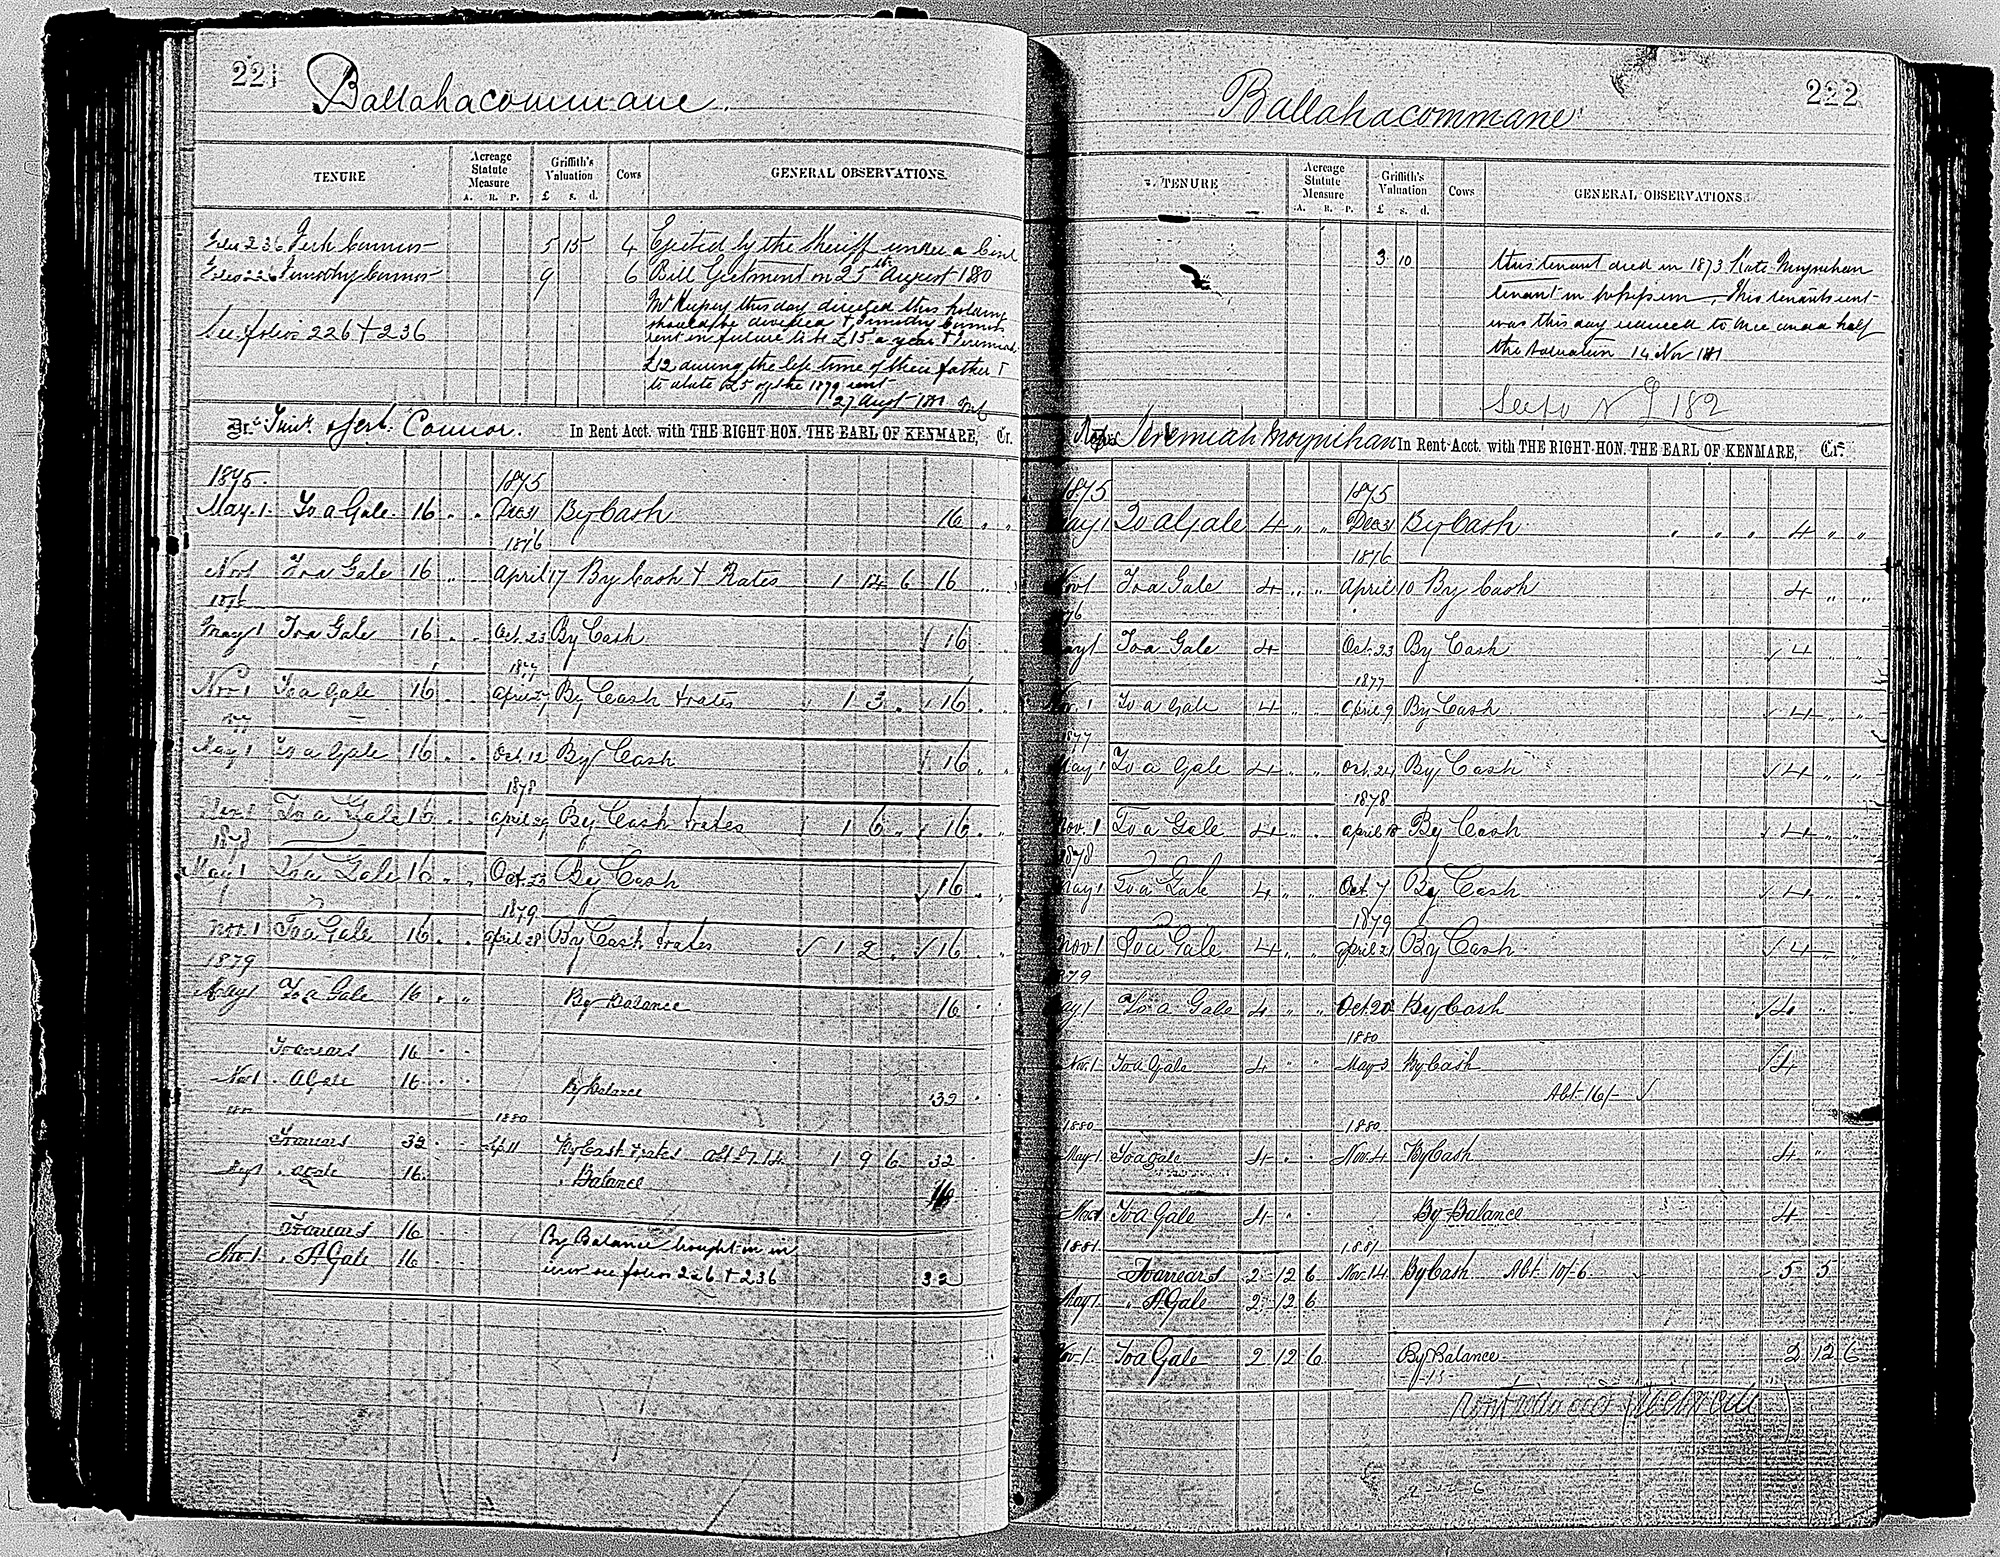 221
Ballahacommane.
TENURE Acreage Statute Measure A. R. P. Griffith's Valuation £ s. d. Cows GENERAL OBSERVATIONS.
Folio 236 Jerh Connor 5 15 4 Ejected by the Sheriff under a Civil
Folio 226 Timothy Connor 9 6 Bill Ejectment on 25th August 1880
this day directed this holding
should be divided & Timothy Connors
rent in future to be £15 a year & Jeremiah
£12 during the life time of their father &
to abate of the 1879 rent
See folios 226 + 236
27 Augt 1881
Dr. Timy. & Jerh. Connor. In Rent Acct. with THE RIGHT HON. THE EARL OF KENMARE, Cr.
1875 1875
May 1 To a Gale 16 " " Dec 31 By Cash 16 " "
1876
Nov 1 To a Gale 16 " " April 17 By Cash + Rates 1 14 6 16 " "
1876
May 1 To a Gale 16 " " Oct. 23 By Cash 16 " "
1877
Nov 1 To a Gale 16 " " April 27 By Cash + rates 1 3 " 16 " "
77
May 1 To a Gale 16 " " Oct. 12 By Cash 16 " "
1878
Nov 1 To a Gale 16 " " April By Cash + rates 1 6 " 16 " "
1878
May 1 To a Gale 16 " " Oct. 23 By Cash 16 "
1879
Nov. 1 To a Gale 16 " " April 28 By Cash + rates 1 2 " 16 "
1879
May 1 To a Gale 16 " " By Balance 16 " "
To arrears 16 " "
Nov 1 " A Gale 16 " " By Balance 32 "
1880 1880
To arrears 32 " " By Cash + rates Abt £7.14 1 9 6 32
May 1 " a Gale 16 " Balance 16
To arrears 16
Nov. 1 " A Gale 16 By Balance brought in in
see folios 226 + 236 32
222
Ballahacommane
TENURE Acreage Statute Measure A. R. P. Griffith's Valuation £ s. d. Cows GENERAL OBSERVATIONS.
3 10 this tenant died in 1873 Kate Moynihan
tenant in possession. This tenants rent
was this day reduced to one and a half
the valuation 14 Nov 1881
182
Reps Jeremiah Moynihan In Rent Acct. with THE RIGHT HON. THE EARL OF KENMARE, Cr.
1875 1875
May 1 To a Gale 4 " " Dec 31 By Cash " " " 4 " "
1876
Nov 1 To a Gale 4 " " April 10 By Cash 4 " "
76
May 1 To a Gale 4 Oct. 23 By Cash 4 " "
1877
Nov. 1 To a Gale 4 " " April 9 By Cash 4 " "
1877
May 1 To a Gale 4 " " Oct. 24 By Cash 4 " "
1878
Nov. 1 To a Gale 4 " " April 18 By Cash 4 " "
1878
May 1 To a Gale 4 " " Oct. 7 By Cash 4 " "
1879
Nov 1 To a Gale 4 " " April 21 By Cash 4 " "
1879
May 1 To a Gale 4 " " Oct. 20 By Cash 4 " "
1880
Nov. 1 To a Gale 4 " " May 3 By Cash 4
Abt. 16/-
1880 1880
May 1 To a gale 4 " " Nov. 4 By Cash 4 "
Nov 1 To a Gale 4 " " By Balance 4
1881 1881
To arrears 2 12 6 Nov. 14 By Cash Abt. 10/-6 5 5
May 1 " A Gale 2 12 6
Nov 1 To a Gale 2 12 6 By Balance 2 12 6